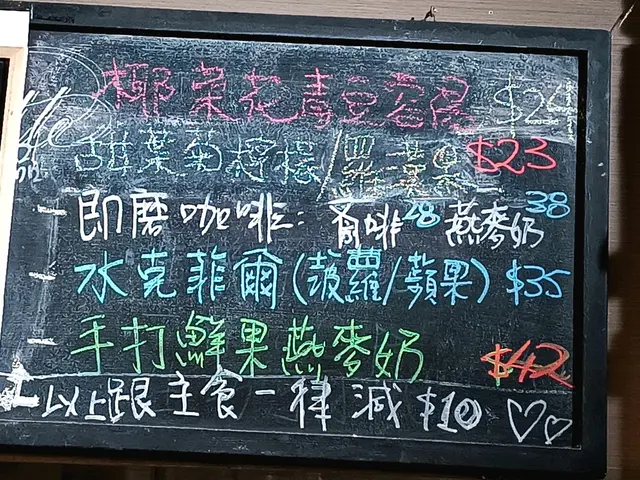 椰棗花青豆容易 $26
甜葉菊檸檬/羅漢果 $23
即磨咖啡: 齋啡28 燕麥奶38
水克菲爾(菠蘿/蘋果) $35
手打鮮果燕麥奶 $42
以上跟主食一律減$10